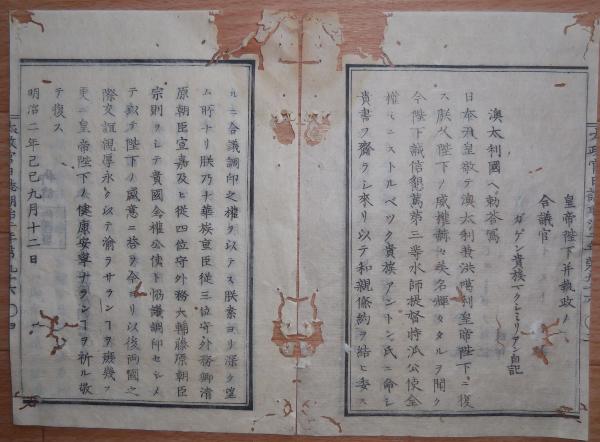 皇帝陛下并執政ノ
合議官
ガゲン貴族マクシミリアン自記
澳太利國ヘ勅答寫
日本天皇敬テ澳太利兼洪噶利皇帝陛下ニ復
ス朕久陛下ノ威権赫々英名輝々タルヲ聞ク
今陛下誠信観萬第三等水師提督特派公使全
権ミニストルペック貴族アントン氏ニ命シ
貴書ヲ齎ラシ來リ以テ和親條約ヲ結ヒ委ス
ルニ合議調印之權ヲ以テス朕素ヨリ深ク望
ム所ナリ朕乃十華族重臣從三位守外務卿清
原朝臣宣嘉及ヒ從四位守外務大輔藤原朝臣
宗則ヲシテ貴國全權公使ト協議調印セシメ
テ以テ陛下ノ盛意ニ答ヲ今ヨリ以後両國之
際交誼親厚永ク以テ渝ラサランコヲ庶幾フ
更ニ皇帝陛下ノ健康安寧ナランコヲ祈ル敬
テ復ス
明治二年己巳九月十二日